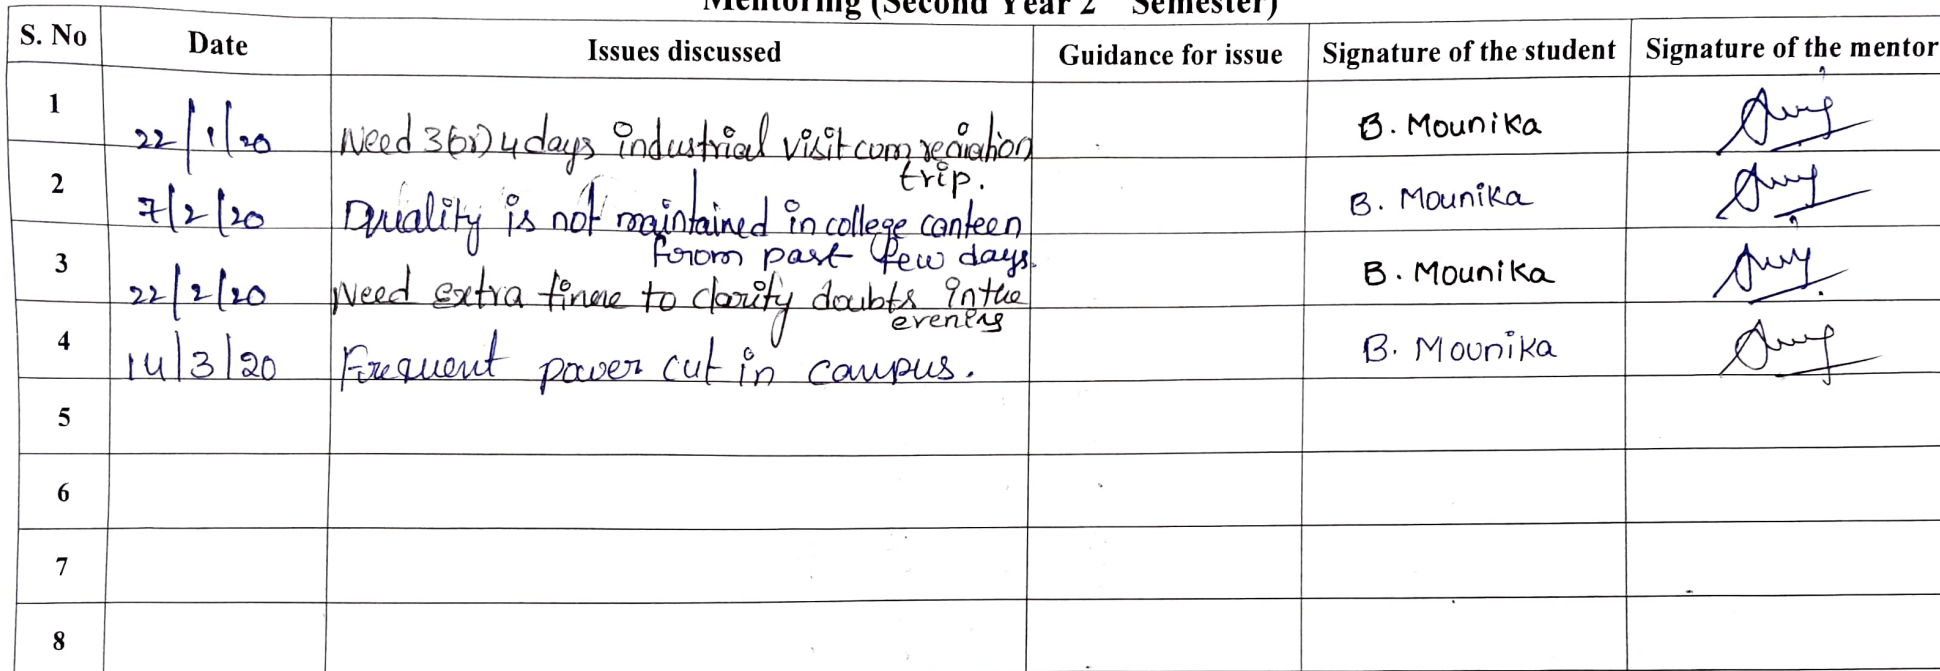 Mentoring (Second Year 2 Semester)
S. No Date Issues discussed Guidance for issue Signature of the student Signature of the mentor
1 22/1/20 Need 3(or) 4 days industrial visit cum recriation B. Mounika
trip.
2 7/2/20 Quality is not maintained in college canteen B. Mounika
from past few days.
3 22/2/20 Need extra time to clarify doubts in the B. Mounika
evening
4 14/3/20 Frequent power cut in campus. B. Mounika
5
6
7
8